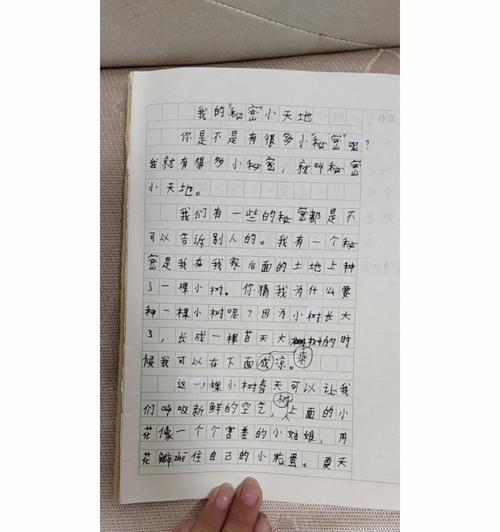 我的"秘密"小天地
你是不是有很多小"秘密"呢?
我就有很多小秘密,就叫秘密
小天地。
我们有一些的秘密都是不
可以告诉别人的。我有一个秘
密是我在我家后面的土地上种
了一棵小树。你猜我为什么要
种一棵小树呢?因为小树长大
了,长成一棵苍天大树的时
候我可以在下面成凉。
乘
这一棵小树春天可以让我
们呼吸新鲜的空气,树上面的小
花像一个个害羞的小姑娘,用
花瓣zhē住自己的小脸蛋。夏天